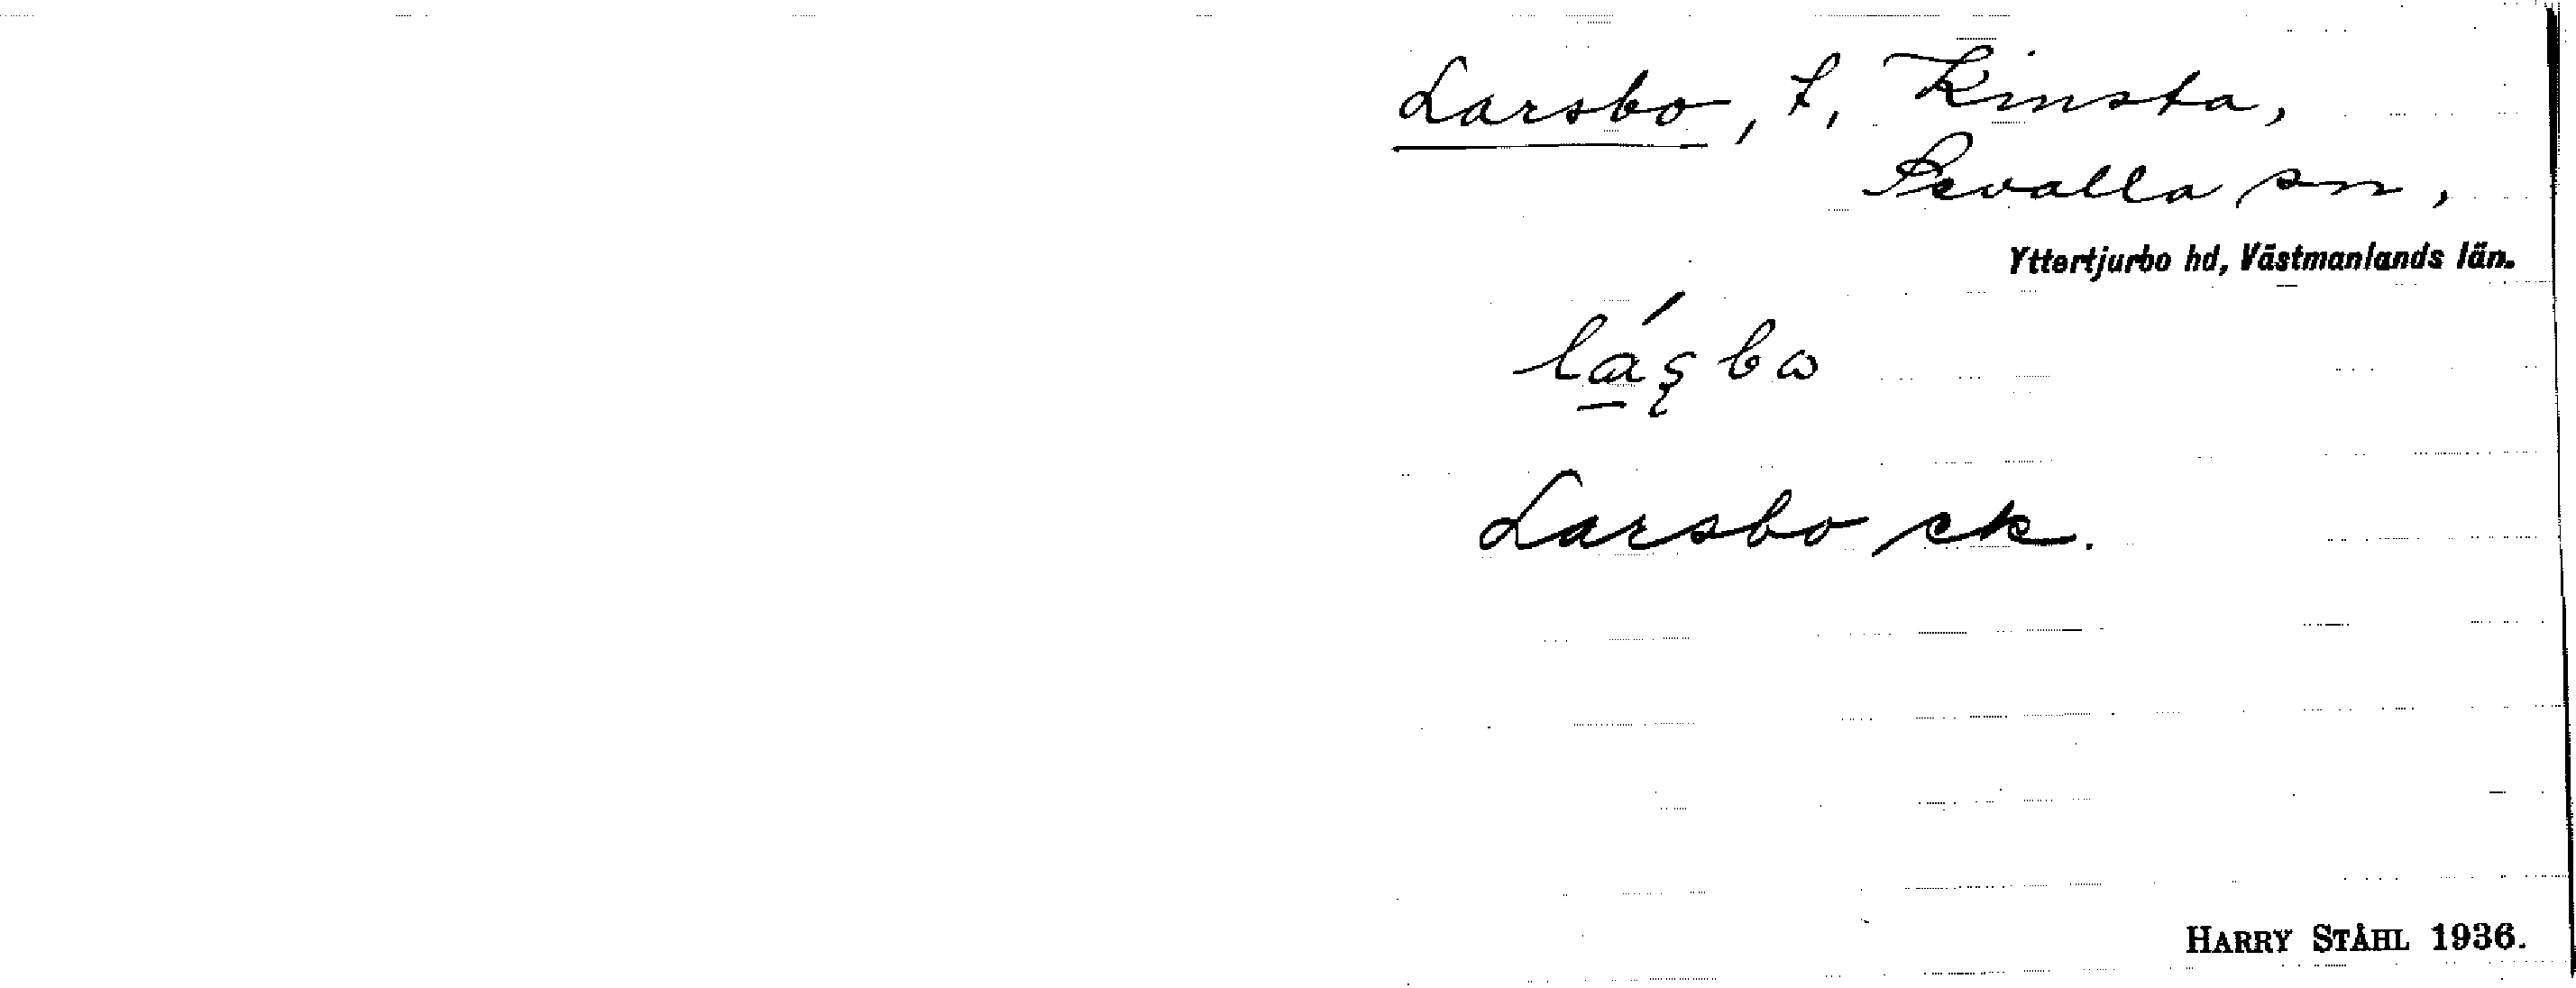 Larsbo, t, Kinsta,
Sevalla sn,
Yttertjurbo hd, Västmanlands län.
láʂbω
Larsbo ek.
HARRY STÅHL 1936.